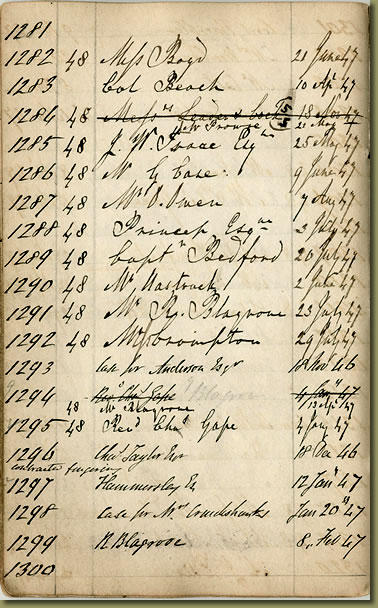 1281
1282 48 Miss Boyd 21 June 47
1283 Col Beach 10 Apl 47
1284 48 Messrs Leader & Cock 18 Nov 47
Mr Prowse 21 47
1285 48 J. W. Isaac Esq 25 May 47
1286 48 Mr G Case. 9 June 47
1287 48 Mr O. Owen 7 Aug 47
1288 48 Princep Esqre 2 July 47
1289 48 Captn Bedford 20 July 47
1290 48 Mr 2 June 47
1291 48 Mr Rd. Blagrove 23 July 47
1292 48 Miss Crompton 29 July 47
1293 Case for Anderson Esqr 18 Nov 46
1294 Revd Chas Gape Blagro 4 Jany 47
48 Mr Blagrove 13 Apl 47
1295 48 Revd Chas Gape 4 Jany 47
1296 Chas Taylor Esqr 18 Dec 46
contracted fingering
1297 Hammersley Esq 12 Jany 47
1298 Case for Mrs Cruickshanks Jan 20th 47
1299 R Blagrove 8. Feb 47
1300